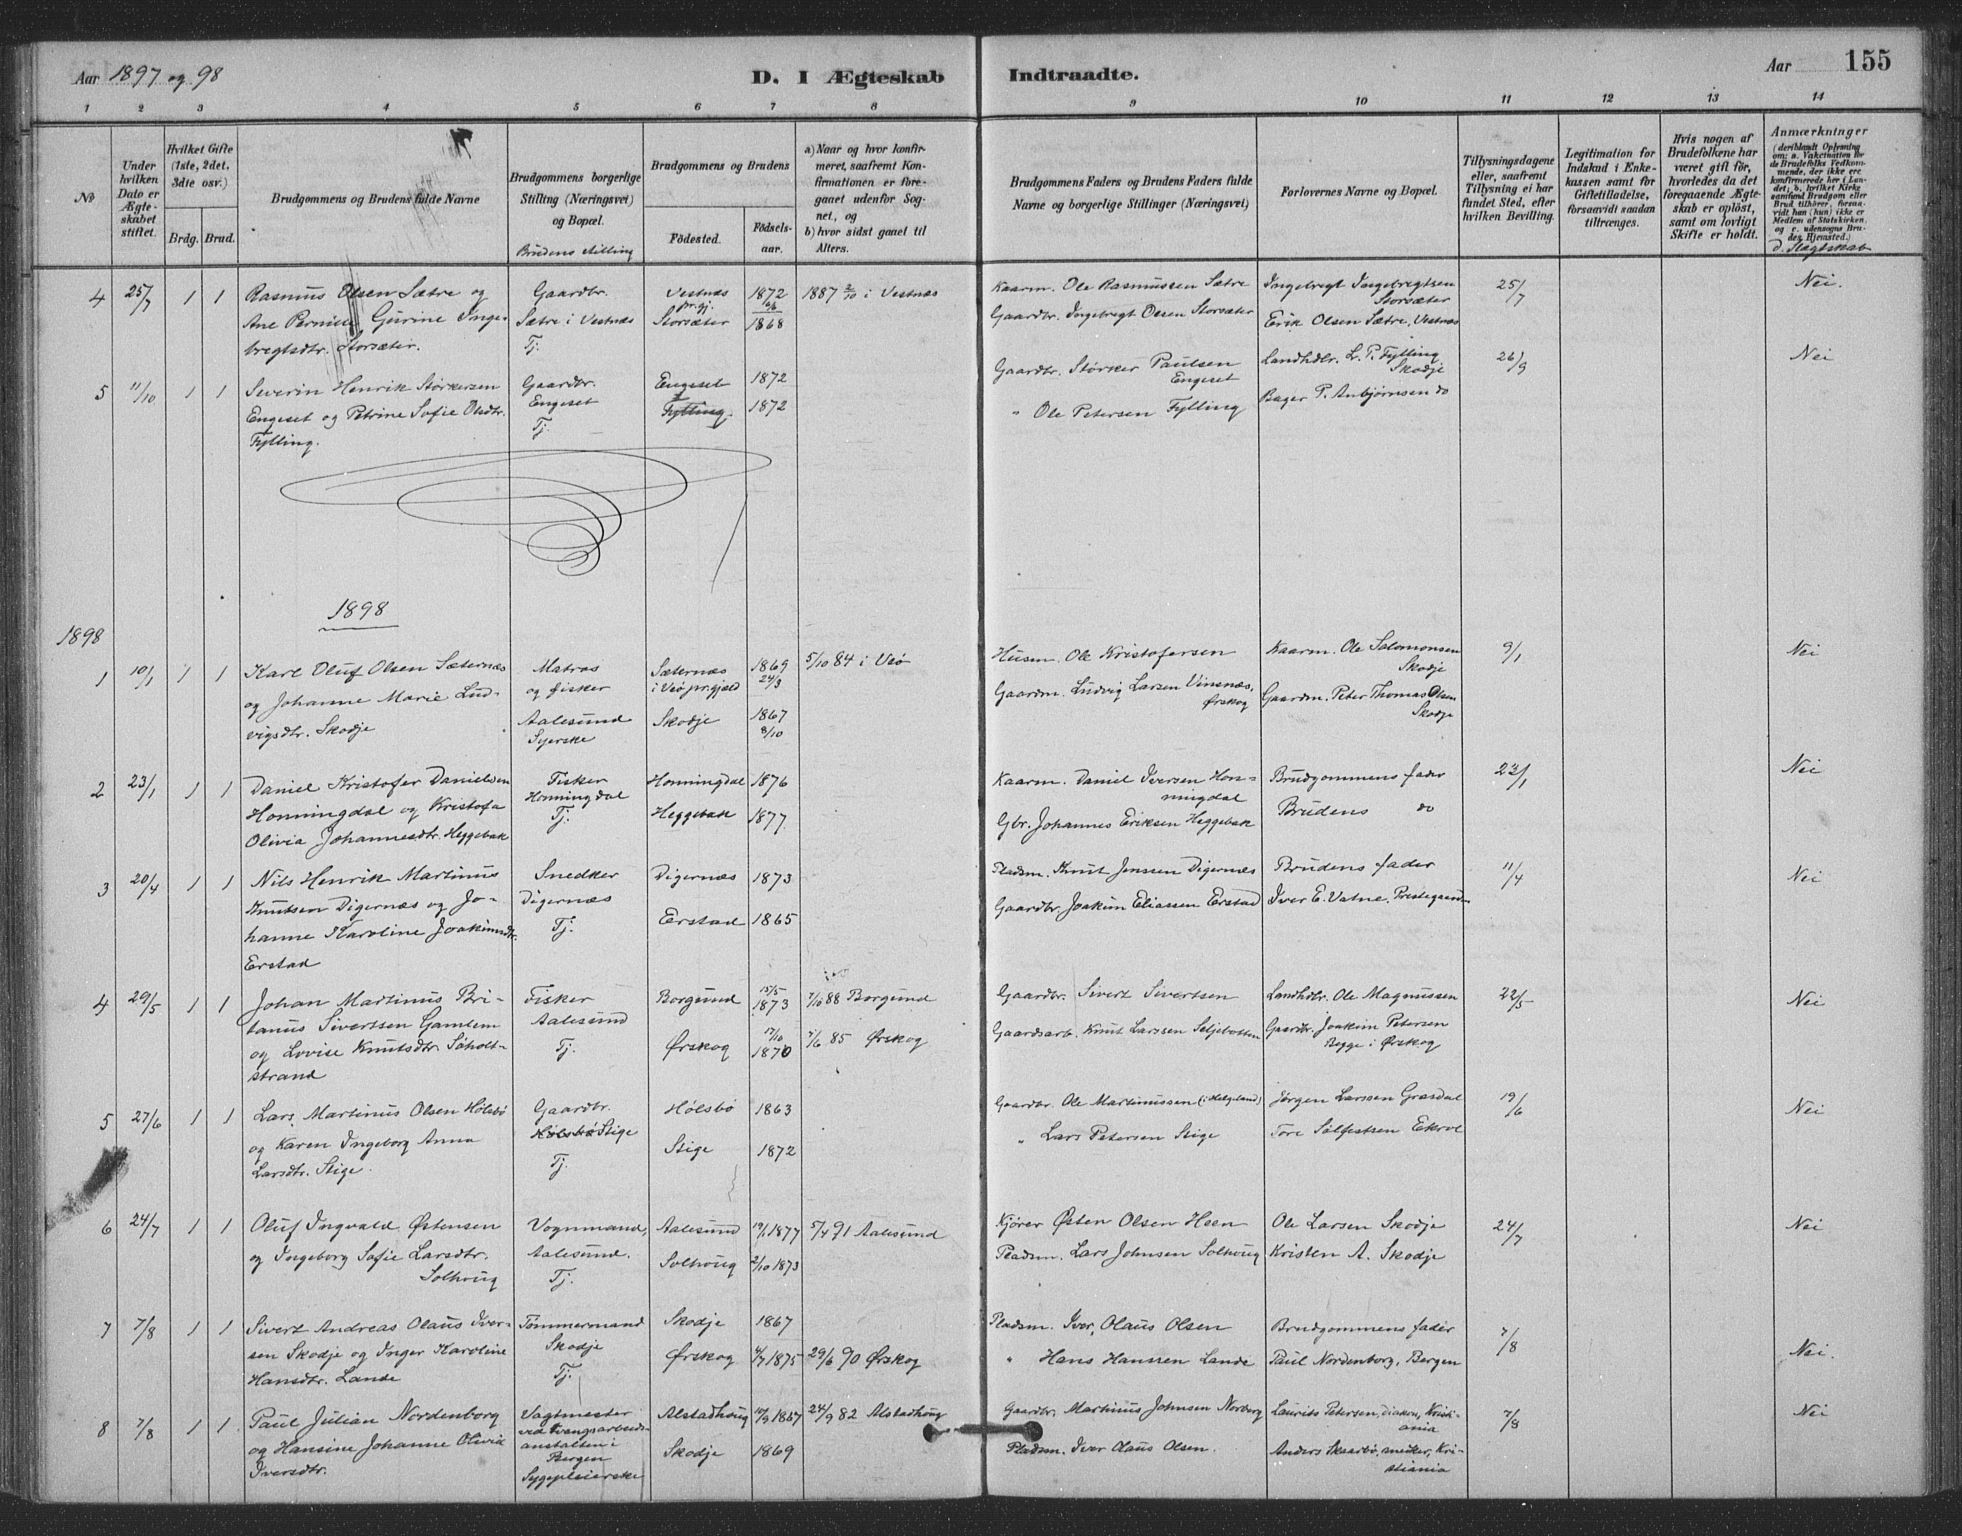 Aar 1897 og 98
D. I Ægteskab Indtraadte.
Aar 155
1 2 3 4 5 6 7 8 9 10 11 12 13 14
No
Under hvilken Dato er Ægteskabet stiftet.
Hvilket Gifte (1ste, 2det, 3die osv.)
Brdg. Brud.
Brudgommens og Brudens fulde Navne
Brudgommens borgerlige Stilling (Næringsvei) og Bopæl.
Brudens stilling
Brudgommens og Brudens
Födested. Födselsaar.
a) Naar og hvor konfirmeret, saafremt Konfirmationen er foregaaet udenfor Sognet, og
b) hvor sidst gaaet til Alters.
Brudgommens Faders og Brudens Faders fulde Navne og borgerlige Stillinger (Næringsvei)
Forlovernes Navne og Bopæl.
Tillysningsdagene eller, saafremt Tillysning ei har fundet Sted, efter hvilken Bevilling.
Legitimation for Indskud i Enkekassen samt for Giftetilladelse, forsaavidt saadan tiltrænges.
Hvis nogen af Brudefolkene har været gift för, hvorledes da det foregaaende Ægteskab er oplöst, samt om lovligt Skifte er holdt.
Anmærkninger (deriblandt Oplysning om: a. Vakcination for de Brudefolks Vedkommende, der ikke ere konfirmerede her i Landet; b. hvilket Kirkesamfund Brudgom eller Brud tilhörer, forsaavidt han (hun) ikke er Medlem af Statskirken, og c. udensogns Brudes Hjemsted.)
d. Slægtskab
4 25/7 1 1 Rasmus Olsen Sætre og Gaardbr. Vestnæs 1872 1887 2/10 i Vestnæs Kaarm. Ole Rasmussen Sætre Ingebregt Ingebregtsen Storsæter 25/7 Nei.
Ane Pernille Gurine Inge- Sætre i Vestnæs pr.gj. Storsæter 1868 Gaardbr. Ingebregt Olsen Storsæter Erik Olsen Sætre, Vestnæs
bregtsdtr. Storsæter. Tj.
5 11/10 1 1 Severin Henrik Störkersen Gaardbr. Engeset 1872 Gaardbr. Störker Paulsen Engeset Landhdlr. L. P. Fylling Skodje 26/9 Nei
Engeset og Petrine Sofie Olsdtr. Engeset Fylling. 1872 " Ole Petersen Fylling Bager P. Anbjörnsen do
Fylling. Tj.
1898
1898
1 10/1 1 1 Karl Oluf Olsen Sæternæs Matros Sæternæs 1869 24/3 5/10 84 i Veö Husm. Ole Kristofersen Kaarm. Ole Salomonsen Skodje 9/1 Nei
og Johanne Marie Lud- og fisker i Veö pr.gjeld Gaardm. Ludvig Larsen Vinsnæs, Ørskog Gaardm. Peter Thomas Olsen Skodje
vigsdtr. Skodje Aalesund Skodje 1867 8/10
Syerske
2 23/1 1 1 Daniel Kristofer Danielsen Fisker Honningdal 1876 Kaarm. Daniel Iversen Hon- Brudgommens fader 23/1 Nei
Honningdal og Kristofa Honningdal ningdal
Olivia Johannesdtr. Heggebak Tj. Heggebak 1877. Gbr. Johannes Eriksen Heggebak Brudens do
3 20/4 1 1 Nils Henrik Martinus Snedker Digernæs 1873 Pladsm. Knut Jenssen Digernæs Brudens fader 11/4 Nei
Knutsen Digernæs og Jo- Digernæs Gaardbr. Joakim Eliassen Erstad Iver E. Vatne.
hanne Karoline Joakimsdtr. Tj. Erstad 1865
Erstad
4 29/5 1 1 Johan Martinus Bri- Fisker Borgund 15/5 1873 7/10 88 Borgund Gaardbr. Sivert Sivertsen Landhdlr. Ole Magnussen 22/5 Nei
tanus Sivertsen Gamlem Aalesund Gaardsarb. Knut Larssen Seljebotten Gaardbr. Joakim Petersen
og Lovise Knutsdtr. Søholt- Tj. Ørskog 17/10 1870 7/6 85 Ørskog Begge i Ørskog
strand
5 27/6 1 1 Lars Martinus Olsen Hölsbö Gaardbr. Hölsbö 1863 Gaardbr. Ole Martinussen (i Helgeland) Jörgen Larssen Græsdal 19/6 Nei
og Karen Ingeborg Anna Hölsbö Stige " Lars Petersen Stige Tore Sölfestsen Ekrol
Larsdtr. Stige. Tj. Stige 1872
6 24/7 1 1 Oluf Ingvald Østensen Vognmand, Aalesund 19/1 1877 5/4 91 Aalesund Kjörer Østen Olsen Heen Ole Larsen Skodje 24/7 Nei
og Ingeborg Sofie Larsdtr. Aalesund. Solhoug 2/10 1873 Pladsm. Lars Johnsen Solhoug Kristen A. Skodje
Solhoug Tj.
7 7/8 1 1 Sivert Andreas Olaus Iver- Tømmermand Skodje 1867 Pladsm. Iver Olaus Olsen Brudgommens fader 7/8 Nei.
sen Skodje og Inger Karoline Skodje Ørskog 4/7 1875 29/6 90 Ørskog " Hans Hanssen Lande Paul Nordenborg, Bergen
Hansdtr. Lande Tj.
8 7/8 1 1 Paul Julian Nordenborg Vagtmester Alstadhoug 10/9 1857 24/9 82 Alstadhoug Gaardbr. Martinus Johnsen Norberg Laurits Petersen, diakon, Kristi- 7/8 Nei
og Hansine Johanne Olivia ved tvangsarbeids- ania
Iversdtr. anstalten i Skodje 1869 Pladsm. Iver Olaus Olsen. Anders Skaarbö, snedker, Kri-
Bergen stiania
Sygepleierske